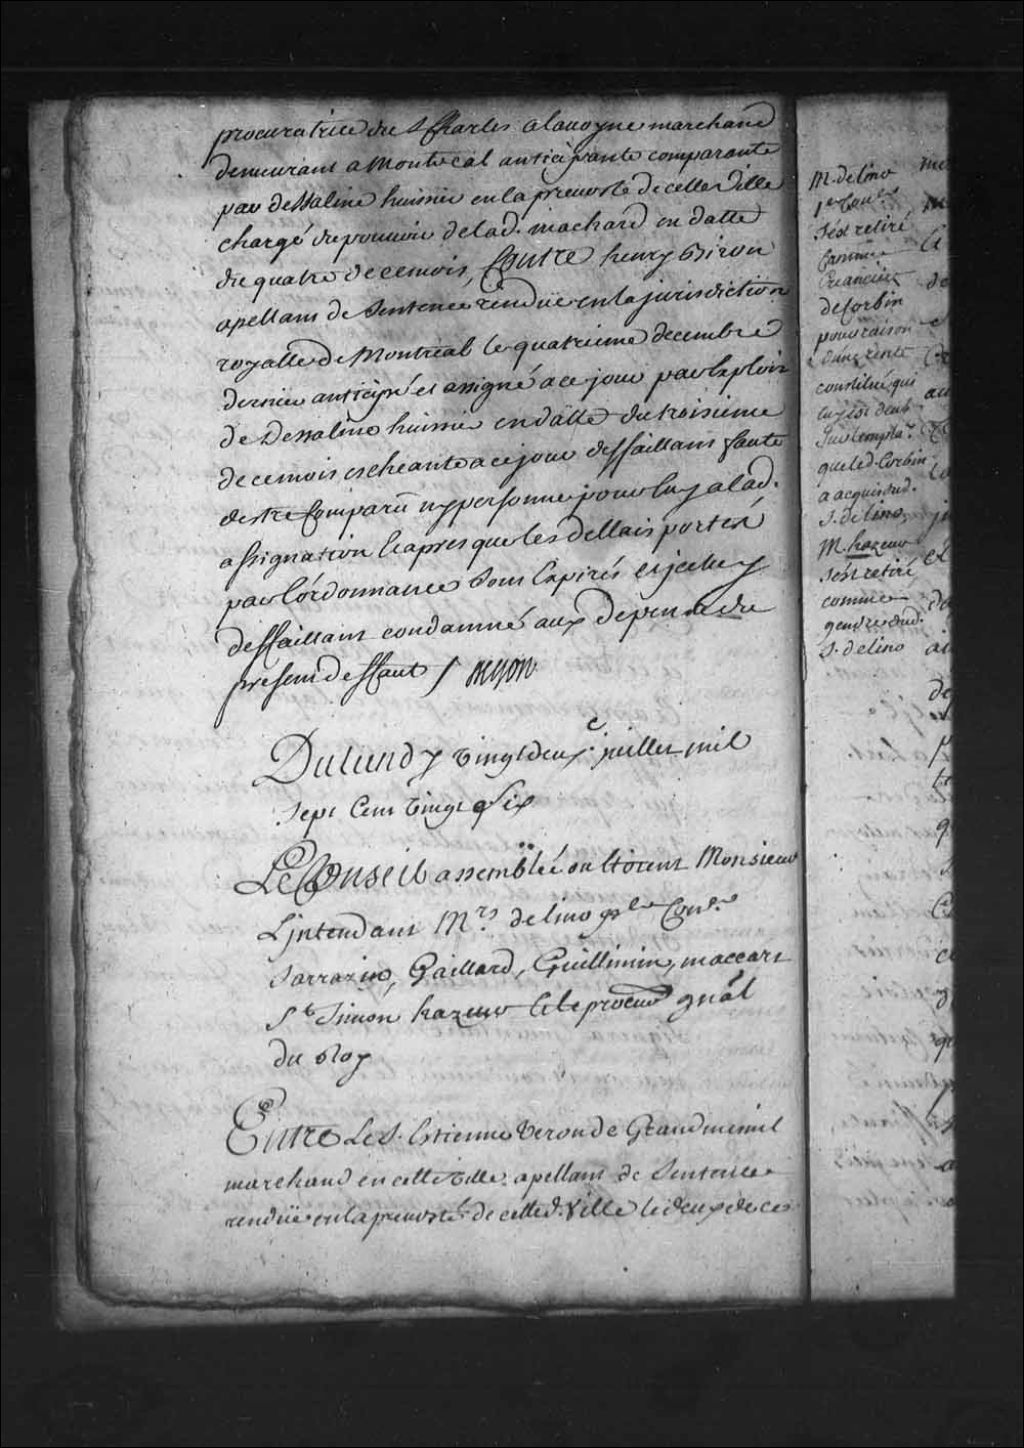 procuratrice du S. Charles alavoyne marchand
demeurant a Montreal anticipante comparante
par dessaline huissier en la prevosté de cette Ville
chargé du pouvoir de lad. machard en datte
du quatre de ce mois, Contre henry Biron
apellant de Sentence rendüe en la jurisdiction
royalle de Montreal le quatrieme decembre
dernier anticipé et assigné a ce jour par Exploit
de Dessaline huissier en datte du troisieme
de ce mois escheante a ce jour deffaillant faute
destre Comparu ny personne pour luy a lad.
assignation Et apres que les dellais portez
par l'ordonnance Sont Expirés et jceluy
deffaillant condamné aux depens du
present deffaut /
Du Lundy Vingt deux.e juillet mil
Sept Cent Vingt Six
Le Conseil assemblé ou Etoient Monsieur
L'jntendant M.rs delino p.er Con.er
Sarrazin, Gaillard, Guillimin, maccart
S.t Simon hazeur Et le procur gnãl
du Roy
Entre Le S. Estienne Veron de Grandmenil
marchand en cette Ville apellant de Sentence
rendüe en la prevosté de cette d. Ville le deux de ce
M. delino
1.er Con.er
s'est retiré
Comme
Creancier
de Corbin
pour raison
d'une rente
constitué qui
luy est deub
que led. Corbin
a acquis dud.
S. delino,
M. hazeur
s'est retiré
comme
gendre dud.
S. delino